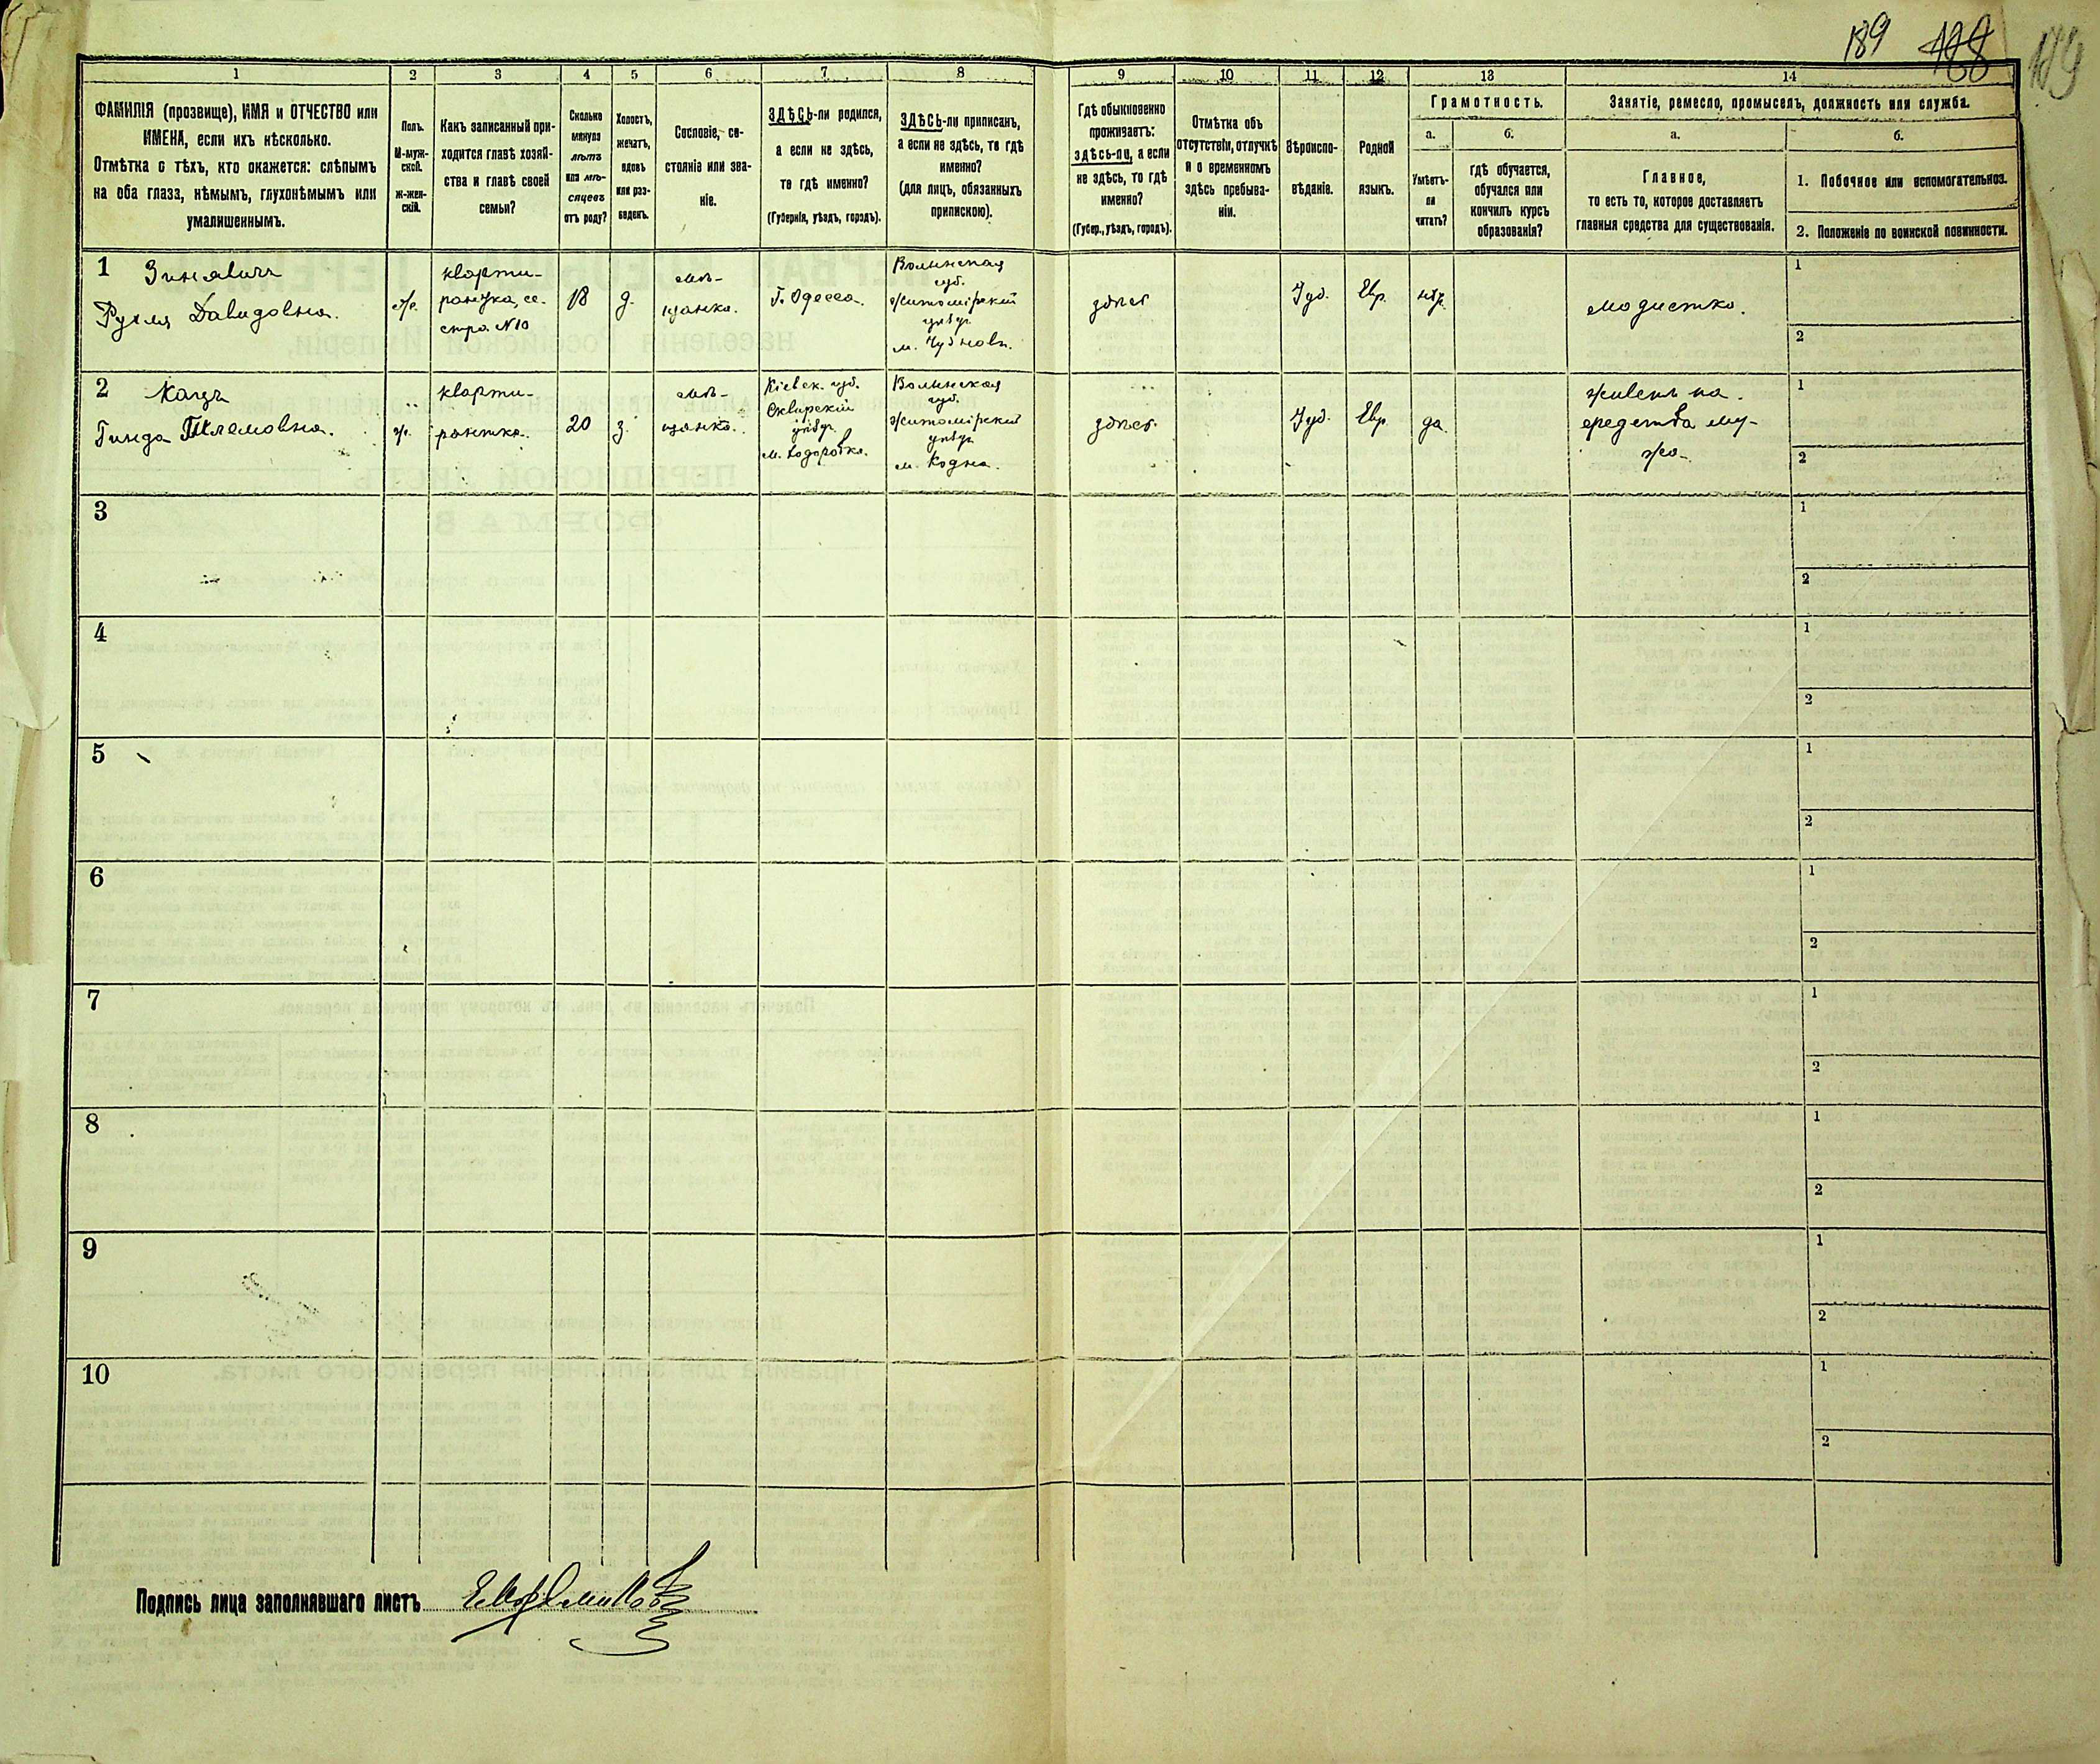 189 188 149
1 2 3 4 5 6 7 8 9 10 11 12 13 14
ФАМИЛІЯ (прозвище), ИМЯ и ОТЧЕСТВО или
ИМЕНА, если ихъ нѣсколько.
Отмѣтка о тѣхъ, кто окажется: слѣпымъ
на оба глаза, нѣмымъ, глухонѣмымъ или
умалишеннымъ.
Полъ.
М-муж-
ской.
Ж-жен-
скій.
Какъ записанный при-
ходится главѣ хозяй-
ства и главѣ своей
семьи?
Сколько
минуло
лѣтъ
или мѣ-
сяцевъ
отъ роду?
Холостъ,
женатъ,
вдовъ
или раз-
веденъ.
Сословіе, со-
стояніе или зва-
ніе.
ЗДѢСЬ-ли родился,
а если не здѣсь,
то гдѣ именно?
(Губернія, уѣздъ, городъ).
ЗДѢСЬ-ли приписанъ,
а если не здѣсь, то гдѣ
именно?
(для лицъ, обязанныхъ
припискою).
Гдѣ обыкновенно
проживаетъ:
здѣсь-ли, а если
не здѣсь, то гдѣ
именно?
(Губер., уѣздъ, городъ).
Отмѣтка объ
отсутствіи, отлучкѣ
и о временномъ
здѣсь пребыва-
ніи.
Вѣроиспо-
вѣданіе.
Родной
языкъ.
Грамотность.
а.
Умѣетъ-
ли
читать?
б.
гдѣ обучается,
обучался или
кончилъ курсъ
образованія?
Занятіе, ремесло, промыселъ, должность или служба.
а.
Главное,
то есть то, которое доставляетъ
главныя средства для существованія.
б.
1. Побочное или вспомогательное.
2. Положеніе по воинской повинности.
1 Зинявичъ
Рухля Давидовна.
ж.
кварти-
рантка, се-
стра №10
18
д.
мѣ-
щанка.
Г. Одесса.
Волынская
губ.
Житомірскій
уѣздъ.
м. Чудновъ.
здѣсь
Іуд.
Евр.
нѣт.
модистка.
1
2
2 Кацъ
Гинда Шлемовна.
ж.
кварти-
рантка.
20
з.
мѣ-
щанка.
Кіевск. губ.
Сквирскій
уѣздъ.
м. Ходоровка.
Волынская
губ.
Житомірскій
уѣздъ.
м. Кодна.
здѣсь.
Іуд.
Евр.
да.
живетъ на
средства му-
жа.
1
2
3
1
2
4
1
2
5
1
2
6
1
2
7
1
2
8
1
2
9
1
2
10
1
2
Подпись лица заполнявшаго листъ